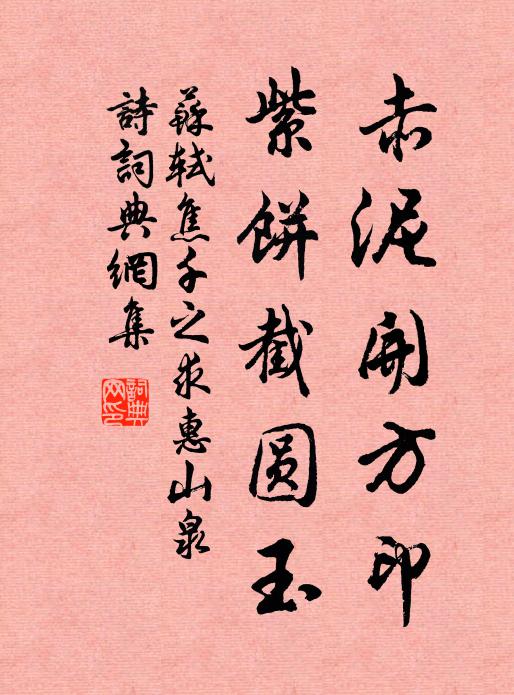 赤泥開方印
紫餅截圓玉
蘇軾焦千之求惠山泉
詩詞典網集
詞典網印